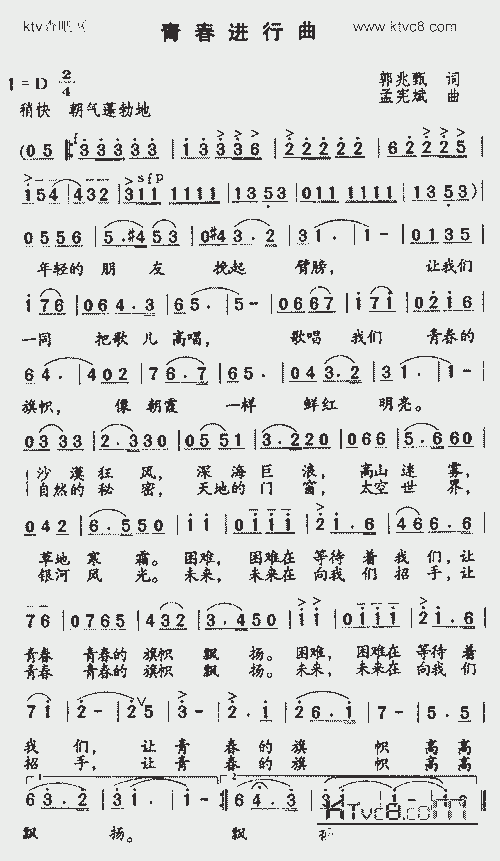 ktv吧 青春进行曲 www.ktvc8.com
1=D 2/4
郭兆甄 词
孟宪斌 曲
稍快 朝气蓬勃地
(0 5 3 3 3 3 3 | 1 3 3 3 6 | 2 2 2 2 2 | 6 2 2 2 5 |
sfp
1 5 4 | 4 3 2 | 3 1 1 1 1 1 1 | 1 3 5 3 | 0 1 1 1 1 1 1 | 1 3 5 3) |
0 5 5 6 | 5 . #4 5 3 | 0 #4 3 . 2 | 3 1 . | 1 - | 0 1 3 5 |
年轻的 朋 友 挽起 臂膀, 让我们
1 7 6 | 0 6 4 . 3 | 6 5 . | 5 - | 0 6 6 7 | 1 7 1 | 0 2 1 6 |
一同 把歌儿 高唱, 歌唱 我们 青春的
6 4 . | 4 0 2 | 7 6 . 7 | 6 5 . | 0 4 3 . 2 | 3 1 . | 1 - |
旗帜, 像 朝霞 一样 鲜红 明亮。
0 3 3 3 | 2 . 3 3 0 | 0 5 5 1 | 3 . 2 2 0 | 0 6 6 | 5 . 6 6 0 |
沙漠狂 风, 深海巨 浪, 高山 迷 雾,
自然的 秘 密, 天地的 门 窗, 太空 世 界,
0 4 2 | 6 . 5 5 0 | 1 1 | 0 1 1 1 | 2 1 . 6 | 4 6 6 . 6 |
草地 寒 霜。 困难, 困难在 等待 着 我们, 让
银河 风 光。 未来, 未来在 向我 们 招手, 让
7 6 | 0 7 6 5 | 4 3 2 | 3 . 4 5 0 | 1 1 | 0 1 1 1 | 2 1 . 6 |
青春 青春的 旗帜 飘 扬。 困难, 困难在 等待 着
青春 青春的 旗帜 飘 扬。 未来, 未来在 向我 们
7 1 | 2 - | 2 5 | 3 - | 2 . 1 | 2 6 . 1 | 7 - | 5 . 5 |
我 们, 让 青 春 的 旗 帜 高高
招 手, 让 青 春 的 旗 帜 高高
1 2
6 3 . 2 | 3 1 . | 1 - 6 4 . 3 | 1 - | 1 - | 1 0
飘 扬。 飘
KTvc8.com